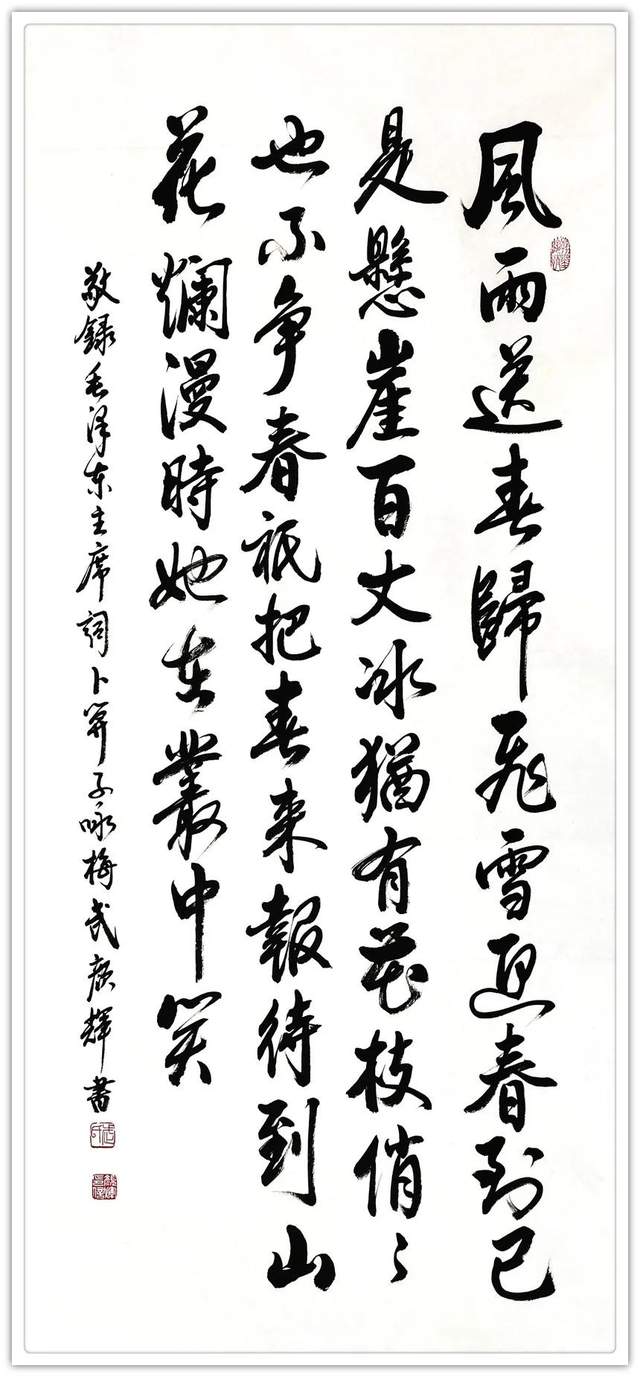 風雨送春歸飛雪迎春到已
是懸崖百丈冰猶有花枝俏〻
也不争春衹把春来報待到山
花爛漫時她在叢中笑
敬録毛泽东主席詞卜算子咏梅武輝書